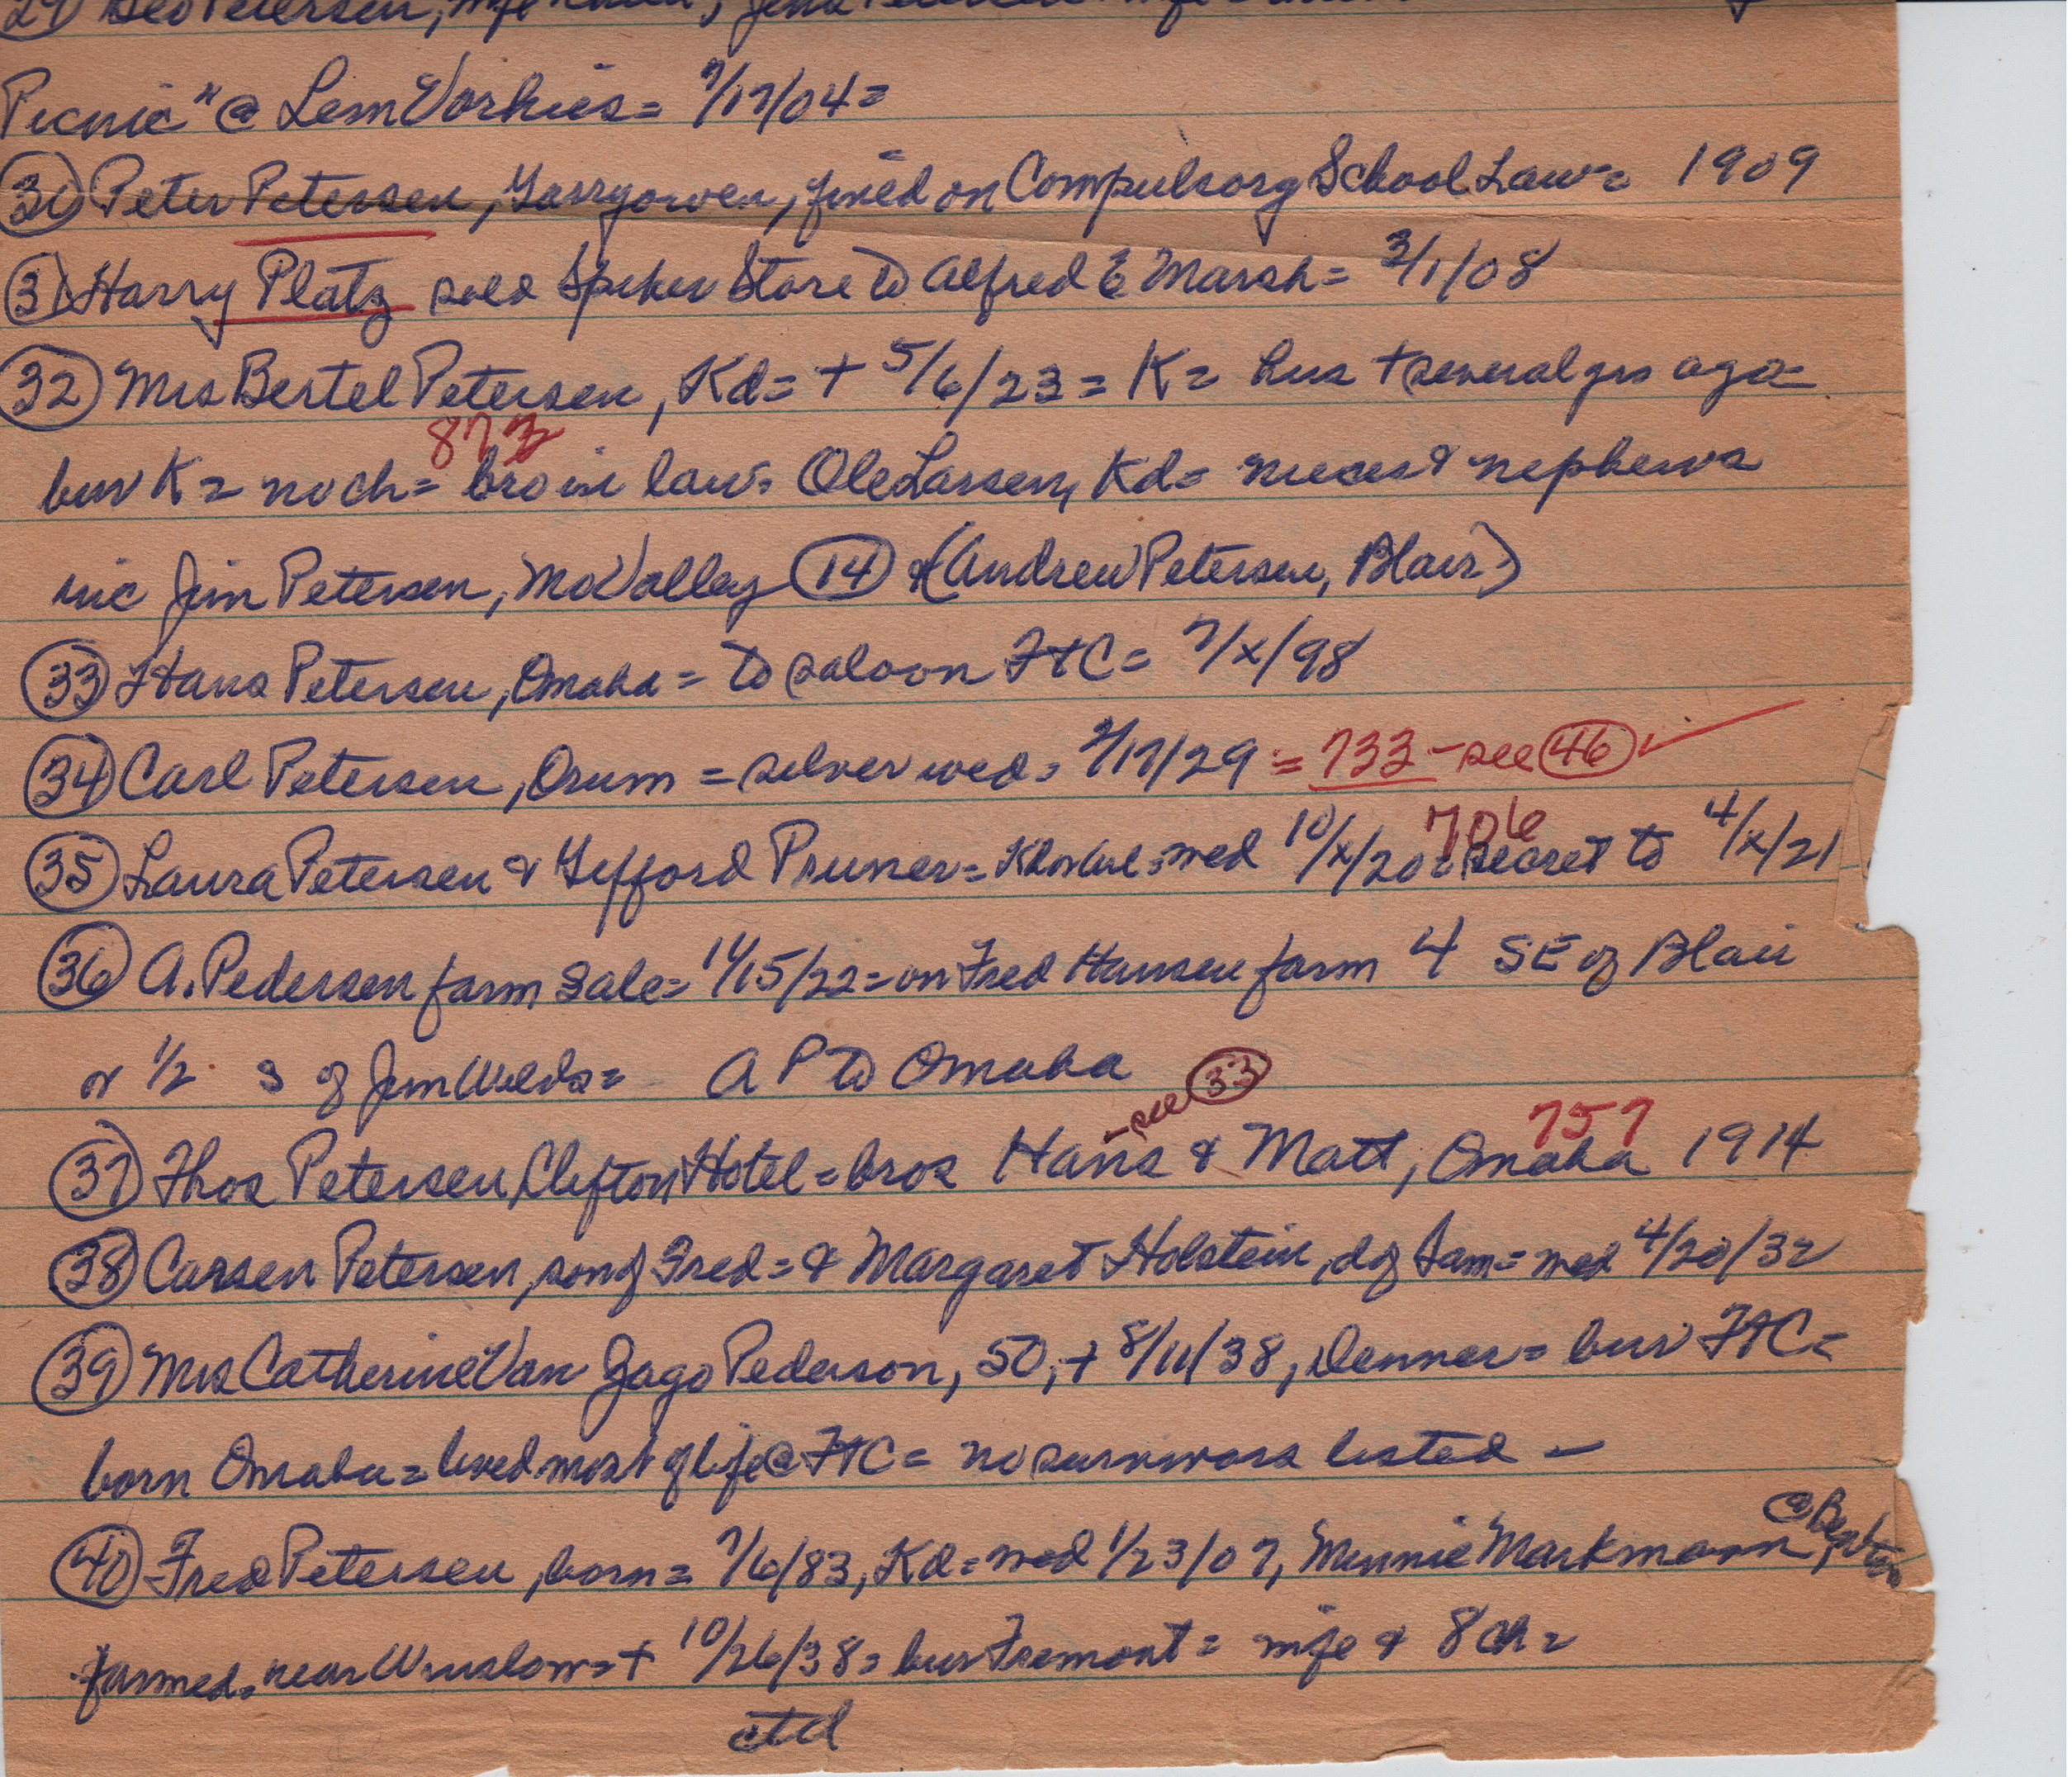 29 Geo Petersen, wife
Picnic" @ Lem Vorhies = 7/17/04 =
30 Peter Petersen, Garryowen, fined on Compulsory School Law = 1909
31 Harry Platz sold Spiker Store to Alfred E Marsh = 3/1/08
32 Mrs Bertel Petersen, Kd = + 5/6/23 = K = hus + several yrs ago =
873
bur K = no ch = bro in law = Ole Larsen, Kd = nieces & nephews
inc Jim Petersen, Mo Valley 14 & (Andrew Petersen, Blair)
33 Hans Petersen, Omaha = to saloon FtC = 7/x/98
34 Carl Petersen, Orum = silver wed = 2/17/29 = 733 - see 46 ✓
706
35 Laura Petersen & Gifford Pruner = = wed 10/x/20 = secret to 4/x/21
36 A. Pedersen farm sale = 11/15/22 = on Fred Hansen farm 4 SE of Blair
or 1/2 S of Jim Wilds = A P to Omaha
- see 33
757
37 Thos Petersen, Clifton Hotel = bros Hans & Matt, Omaha 1914
38 Carsen Petersen, son of Fred = & Margaret Holstein, d of Sam = wed 4/20/32
39 Mrs Catherine Van Jago Pederson, 50, + 8/11/38, Denver = bur FtC =
born Omaha = lived most of life @ FtC = no survivors listed -
@ Benton
40 Fred Petersen, born = 7/6/83, Kd = wed 1/23/07, Minnie Markmann,
farmed = near Winslow = + 10/26/38 = bur Fremont = wife & 8 ch =
ctd